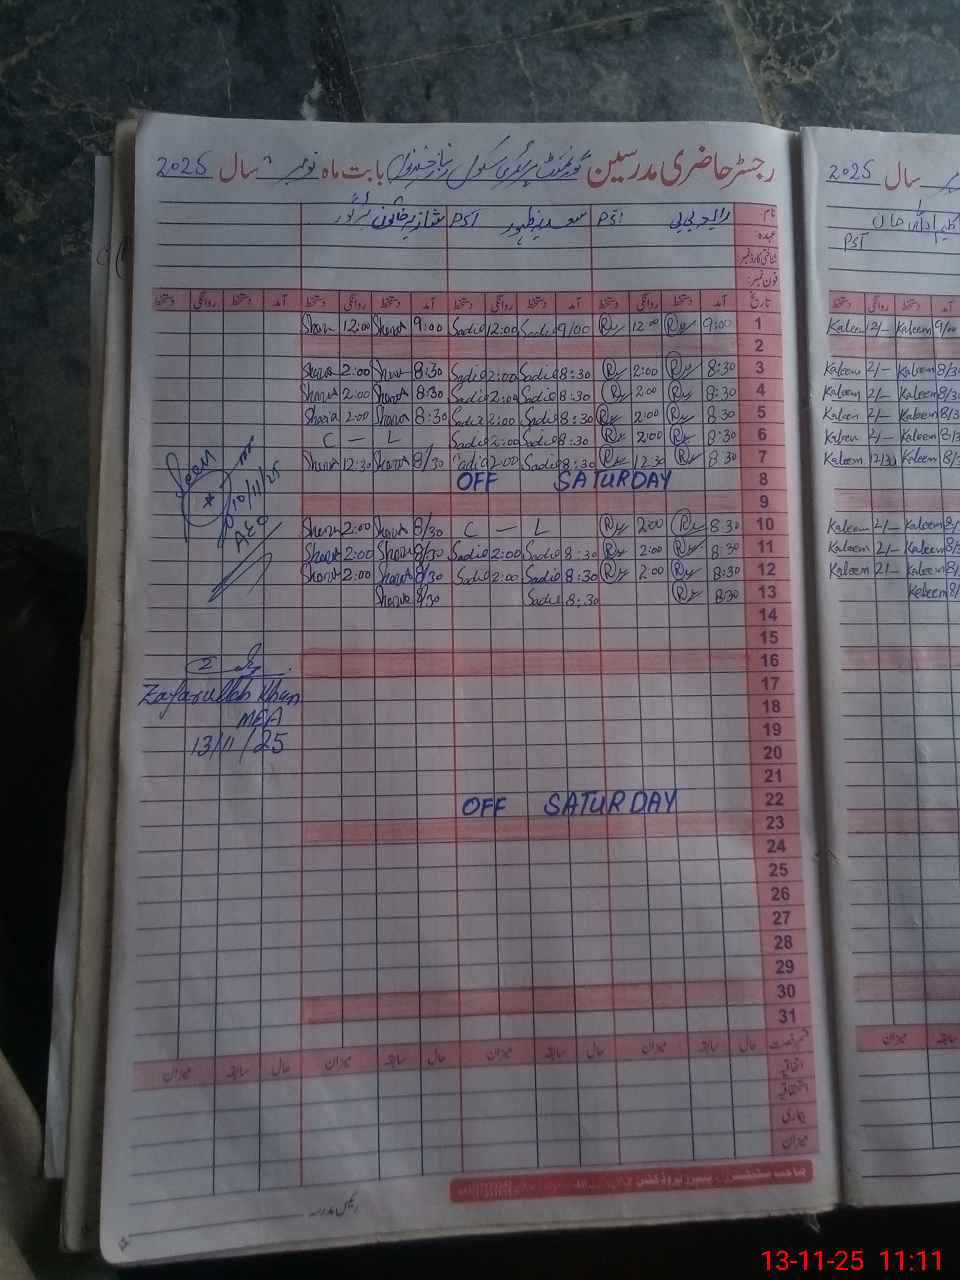 رجسٹر حاضری مدرسین گورنمنٹ پرائمری سکول بابت ماہ نومبر سال 2025
نام رابعہ بی بی PST سعدیہ ظہور PST شازیہ خاتون
عہدہ
شناختی کارڈ نمبر
فون نمبر
تاریخ آمد دستخط روانگی دستخط آمد دستخط روانگی دستخط آمد دستخط روانگی دستخط آمد دستخط روانگی دستخط
1 9:00 12:00 9/00 Sadie 12:00 Sadie 9:00 Shazia 12:00 Shazia
2
3 8:30 2:00 8:30 Sadie 2:00 Sadie 8:30 Shazia 2:00 Shazia
4 8:30 2:00 8:30 Sadie 2:00 Sadie 8:30 Shazia 2:00 Shazia
5 8:30 2:00 8:30 Sadie 2:00 Sadie 8:30 Shazia 2:00 Shazia
6 8:30 2:00 8:30 Sadie 2:00 Sadie C — L
7 8:30 12:30 8:30 Sadie 2:00 Sadie 8/30 Shazia 12:30 Shazia
8 OFF SATURDAY
9
10 8:30 2:00 C — L 8/30 Shazia 2:00 Shazia
11 8:30 2:00 8:30 Sadie 2:00 Sadie 8/30 Shazia 2:00 Shazia
12 8:30 2:00 8:30 Sadie 2:00 Sadie 8/30 Shazia 2:00 Shazia
13 8:30 8:30 Sadie 8/30 Shazia
14
15
16
17
18
19
20
21
22 OFF SATURDAY
23
24
25
26
27
28
29
30
31
Seen
10/11/25
AEO
2
Zafarullah Khan
MEA
13/11/25
قسم رخصت حال سابقہ میزان حال سابقہ میزان حال سابقہ میزان حال سابقہ میزان
اتفاقیہ
استحقاقیہ
بیماری
میزان
رئیس مدرسہ
سال 2025
PST
دستخط روانگی دستخط آمد
Kaleem 12/- Kaleem 9/00
Kaleem 2/- Kaleem 8/3
Kaleem 2/- Kaleem 8/3
Kaleem 2/- Kaleem 8/3
Kaleem 2/- Kaleem 8/3
Kaleem 12/30 Kaleem 8/3
Kaleem 2/- Kaleem 8/
Kaleem 2/- Kaleem 8/
Kaleem 2/- Kaleem 8/
Kaleem 8/
میزان سابقہ
13-11-25 11:11